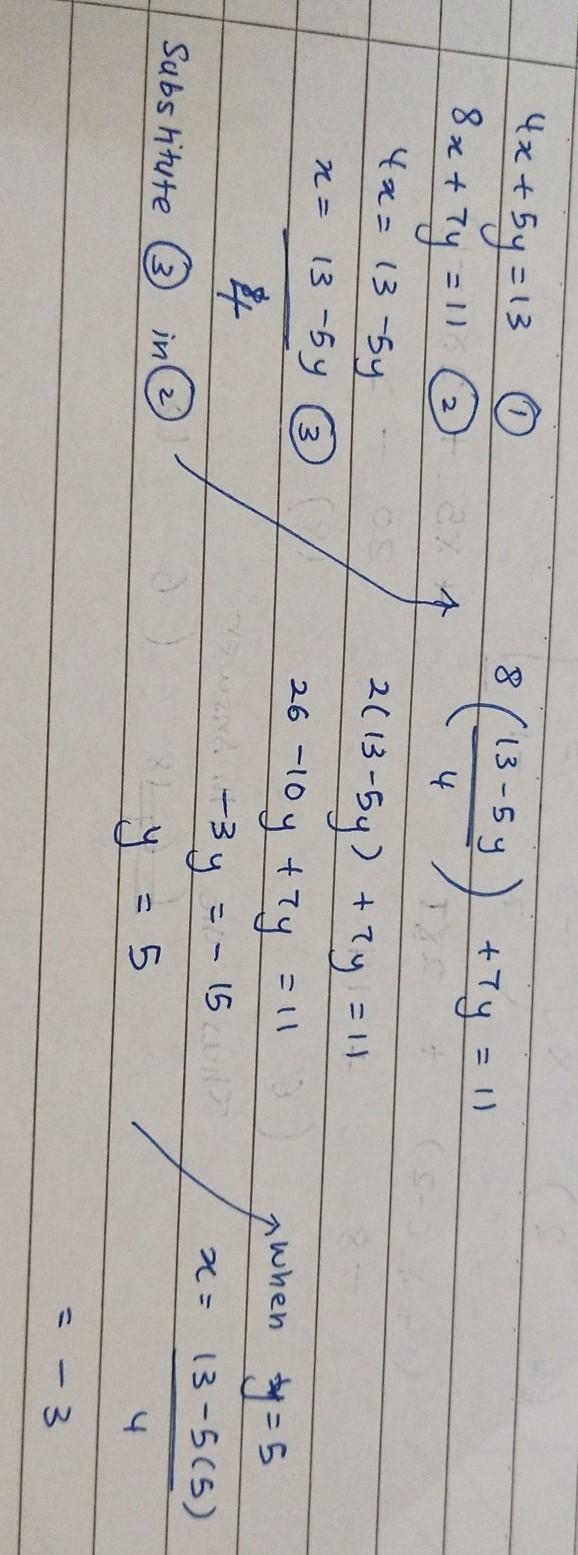 4x + 5y = 13 ①
8x + 7y = 11 ②
4x = 13 - 5y
x = 13 - 5y ③
4
Substitute ③ in ②
8 (13 - 5y) + 7y = 11
4
2(13 - 5y) + 7y = 11
26 - 10y + 7y = 11
-3y = -15
y = 5
when y = 5
x = 13 - 5(5)
4
= -3